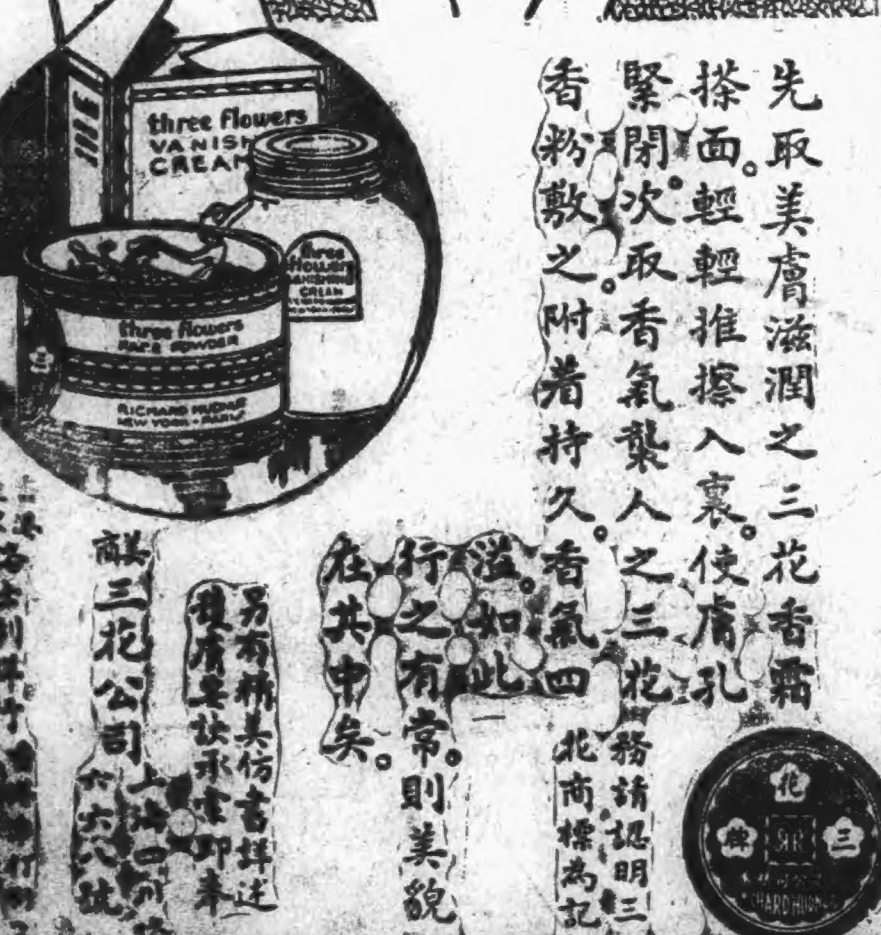 three flowers
VANISH
CREAM
three
flowers
VANISHING
CREAM
three flowers
FACE POWDER
RICHARD HUDNUT
NEW YORK - PARIS
先取美膚滋潤之三花香霜
搽面。輕輕推擦入裏。使膚孔
緊閉。次取香氣襲人之三花
香粉敷之。附着持久。香氣四
溢。如此
行之有常。則美貌
在其中矣。
務請認明三
花商標為記
三花牌
另有精美仿書詳述
護膚要訣承索即奉
美商三花公司
上海四川路
六六八號